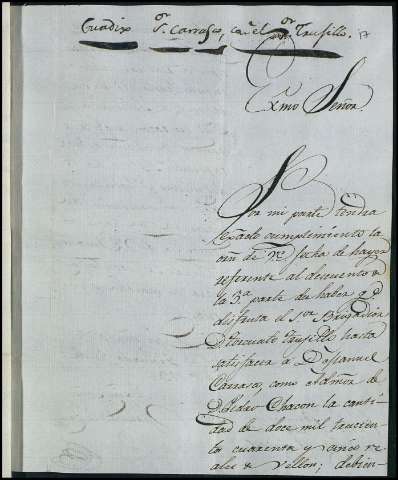 Guadix Sr. Carrasco, con el Sr. Trujillo. 17
Exmo Señor
Por mi parte tendra
exacto cumplimiento la
orn de VE fecha de hayer
referente al descuento de
la 3ª parte de haber qe
disfruta el Sor Brigadier
Dn Torcuato Trujillo hasta
satisfacer a Dn Manuel
Carrasco, como Admor de
Dn Pedro Chacon la canti-
dad de doce mil trucien-
tos cuarenta y cinco re-
ales de vellon; debien-